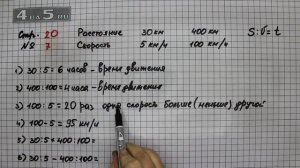 4 на 5.ru
Стр. 20 Расстояние 30 км 400 км S:v=t
№ 7 Скорость 5 км/ч 100 км/ч
1) 30:5=6 часов - время движения
2) 400:100=4 часа - время движения
3) 100:5=20 раз одна скорость больше (меньше) другой
4) 100-5=95 км/ч
5) 30:5+400:100=
6) 30:5-400:100=